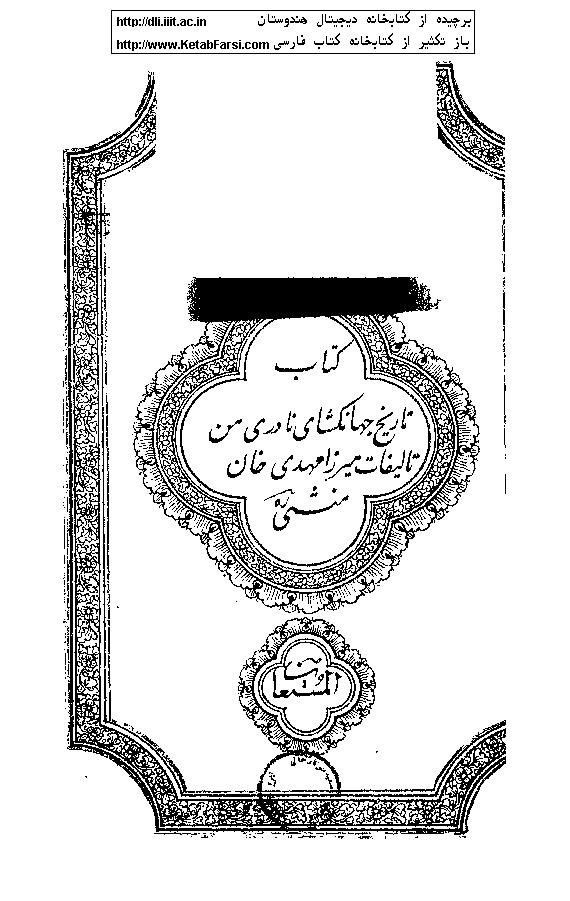 برچیده از کتابخانه دیجیتال هندوستان http://dli.iiit.ac.in
باز تکثیر از کتابخانه کتاب فارسی http://www.KetabFarsi.com
کتاب
تاریخ جهانکشای نادری من
تالیفات میرزا مهدی خان
منشی ره